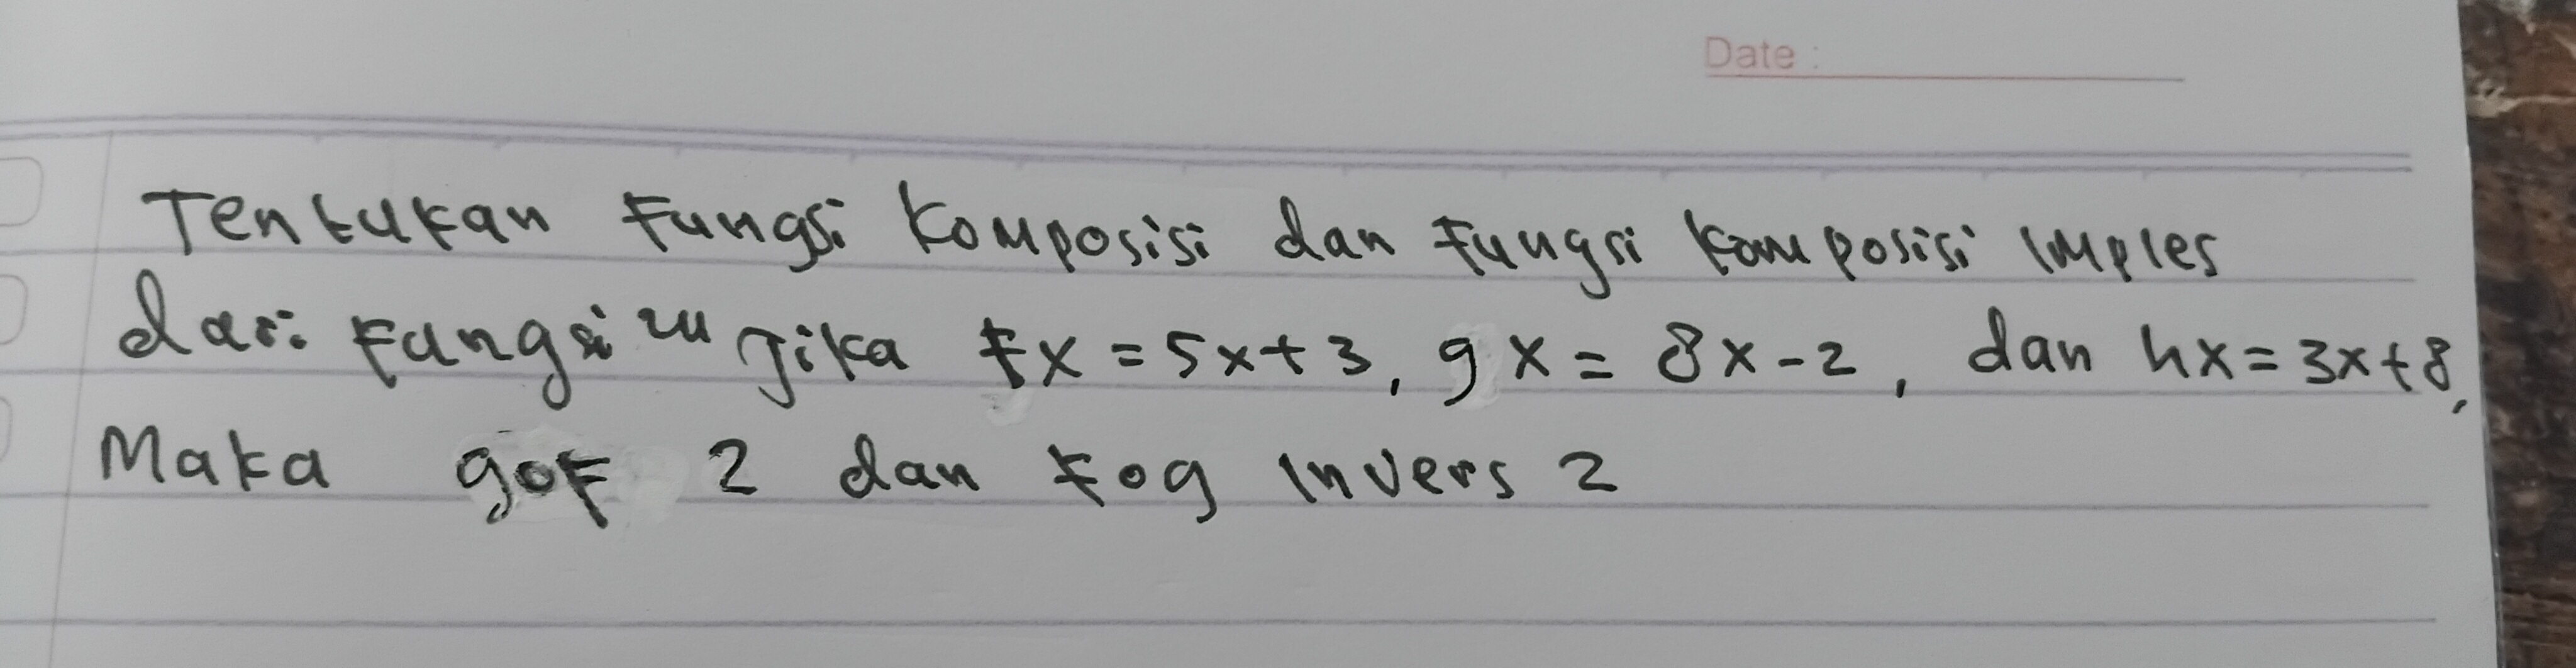 Date :
Tentukan Fungsi Komposisi dan Fungsi Komposisi Imples
dari Fungsi" Jika Fx = 5x+3, gx = 8x-2, dan hx = 3x+8,
Maka gof 2 dan fog invers 2